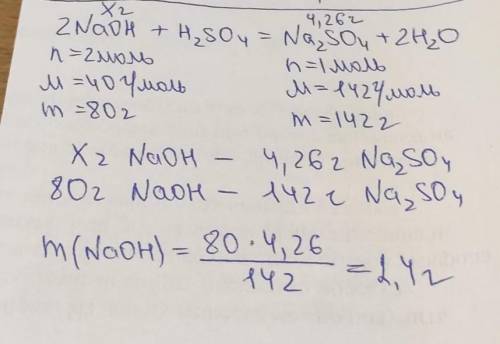 x г 4,26 г
2NaOH + H₂SO₄ = Na₂SO₄ + 2H₂O
n = 2 моль n = 1 моль
M = 40 г/моль M = 142 г/моль
m = 80 г m = 142 г
X г NaOH – 4,26 г Na₂SO₄
80 г NaOH – 142 г Na₂SO₄
m(NaOH) = 80 · 4,26 / 142 = 2,4 г